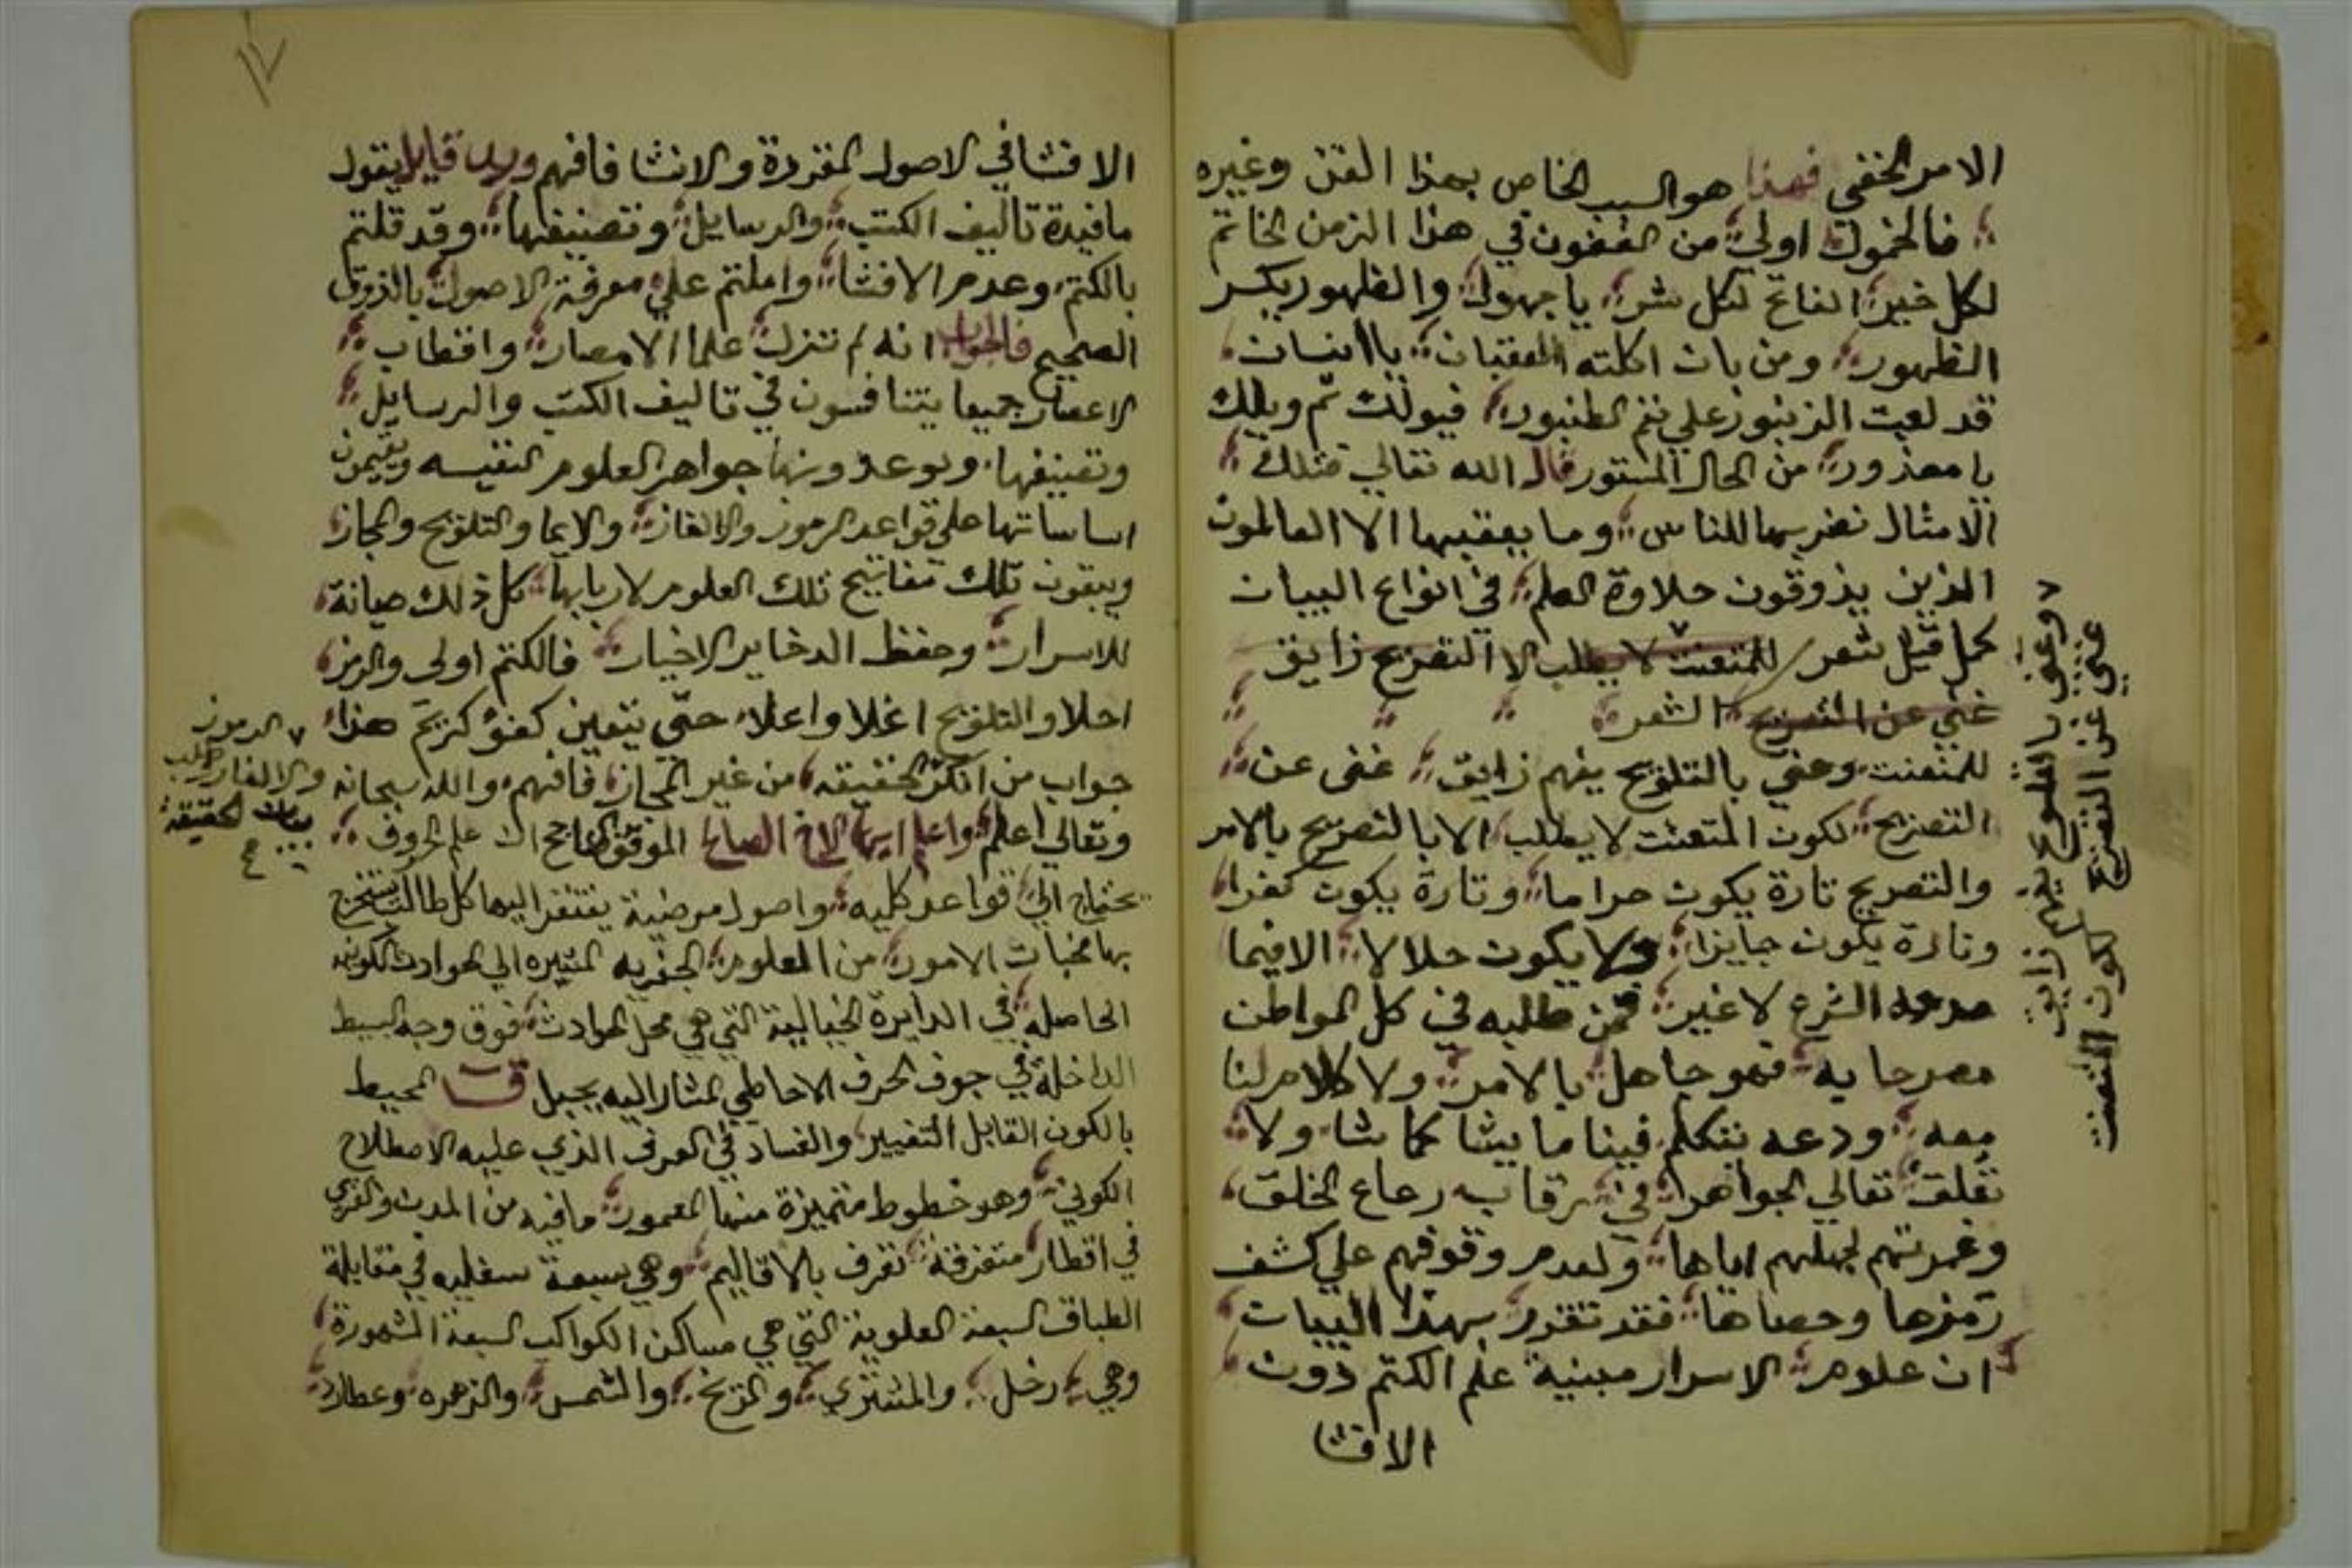 الامر الخفي فهذا هو السبب الخاص بهذا الفن وغيره
فالخمول اولى من الفنون في هذا الزمن الخاتم
لكل خير الفاتح لكل شر يا جهول والظهور يكسر
الظهور ومن بان اكلته العقبان يا انسان
قد لعبت الزنبور علي نغم الطنبور فيولك ثم ويلك
يا معذور من الحال المستور قال الله تعالي فتلك
الامثال نضربها للناس وما يعقلها الا العالمون
الذين يذوقون حلاوة العلم في انواع البيان
كما قيل شعر للمتعنت لا يطلب الا التصريح زايق
غني عن التصريح الشعر
للمتعنت وعني بالتلويح يفهم زايق غنى عن
التصريح لكون المتعنت لا يطلب الا بالتصريح بالامر
والتصريح تارة يكون حراما وتارة يكون كفرا
وتارة يكون جايزا ولا يكون حلالا الا فيما
الشرع لا غير فمن طلبه في كل المواطن
مصرحا به فهو جاهل بالامر ولا كلام لنا
معه ودعه يتكلم فينا ما يشا كما شا ولا
تعلق تعالي الجواهر في رقاب رعاع الخلق
وغمرتهم لجهلهم اياها ولعدم وقوفهم علي كشف
رمزها وحصاها فقد تقرر بهذا البيان
ان علوم الاسرار مبنية علم الكتم دون
الافشا
وعني بالتلويح يفهم زايق
غني عن التصريح لكون المتعنت
١٧
الافشا في الاصول المقررة والانشا فافهم ورب قايل يقول
ما فيدة تاليف الكتب والرسايل وتصنيفها وقد قلتم
بالكتم وعدم الافشا واملتم علي معرفة الاصول بالذوق
الصحيح فالجواب انه لم تزل علما الامصار واقطاب
الاعصار جميعا يتنافسون في تاليف الكتب والرسايل
وتصنيفها ويوعدونها جواهر العلوم النفيسه ويقيمون
اساساتها علي قواعد الرموز والالغاز والايما والتلويح والمجاز
ويبقون تلك مفاتيح تلك العلوم لاربابها كل ذلك صيانة
للاسرار وحفظ الدخاير الاخيار فالكتم اولى والرمز
احلا والتلويح اغلا واعلا حتي يتعين كفؤ كريم هذا
جواب من انكر الحقيقه من غير المجاز فافهم والله سبحانه
وتعالي اعلم واعلم ايها الاخ الصالح الموفق الناجح ان علم الحروف
يحتاج الي قواعد كليه واصول مرضية يفتقر اليها كل طالب يستخرج
بها مخبات الامور من العلوم الجفريه المشيره الي الحوادث الكونيه
الحاصله في الدايرة الخيالية التي هي محل الحوادث فوق وجه البسيط
الداخلة في جوف الحرف الاحاطي المشار اليه بجبل ق المحيط
بالكون القابل التغيير والفساد في العرف الذي عليه الاصطلاح
الكوني وهو خطوط متميزة منها المعمور ما فيه من المدن والقري
في اقطار متفرقة تعرف بالاقاليم وهي سبعة سفليه في مقابلة
الطباق السبعة العلوية التي هي مساكن الكواكب السبعة المشهورة
وهي زحل والمشتري والمريخ والشمس والزهره وعطارد
الرموز
والالغاز
بيان الحقيقة